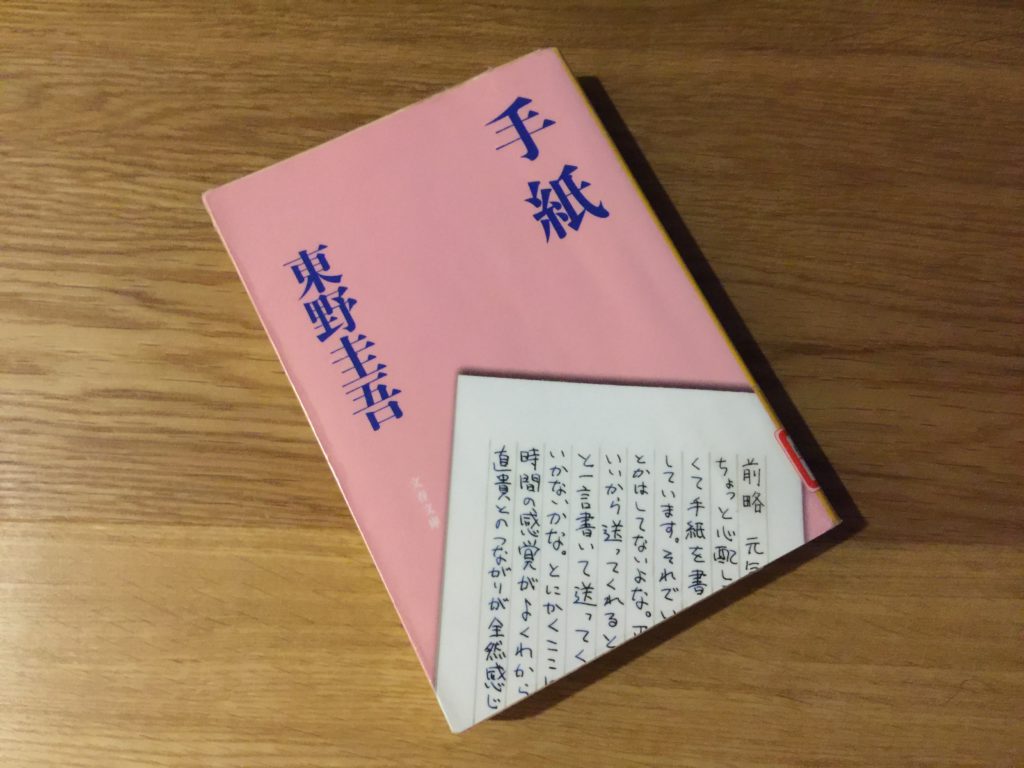 手紙
東野圭吾
文春文庫
前略 元気
ちょっと心配し
くて手紙を書
しています。それでい
とかはしてないよな。
いいから送ってくれると
と一言書いて送ってく
いかないかな。とにかくここに
時間の感覚がよくわから
直貴とのつながりが全然感じ